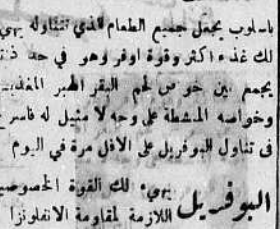 باسلوب يجعل جميع الطعام الذي تتناوله يهيئ
لك غذاء اكثر وقوة اوفر وهو في حد ذاته
يجمع بين خواص لحم البقر الهبر المغذية
وخواصه المنشطة على وجه لا مثيل له فاسرع
في تناول البوفريل على الاقل مرة في اليوم
البوفريل يهيء لك القوة الخصوصية
اللازمة لمقاومة الانفلونزا